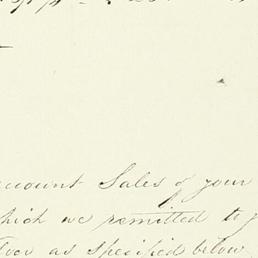 account Sales of your
which we remitted to
as specified below